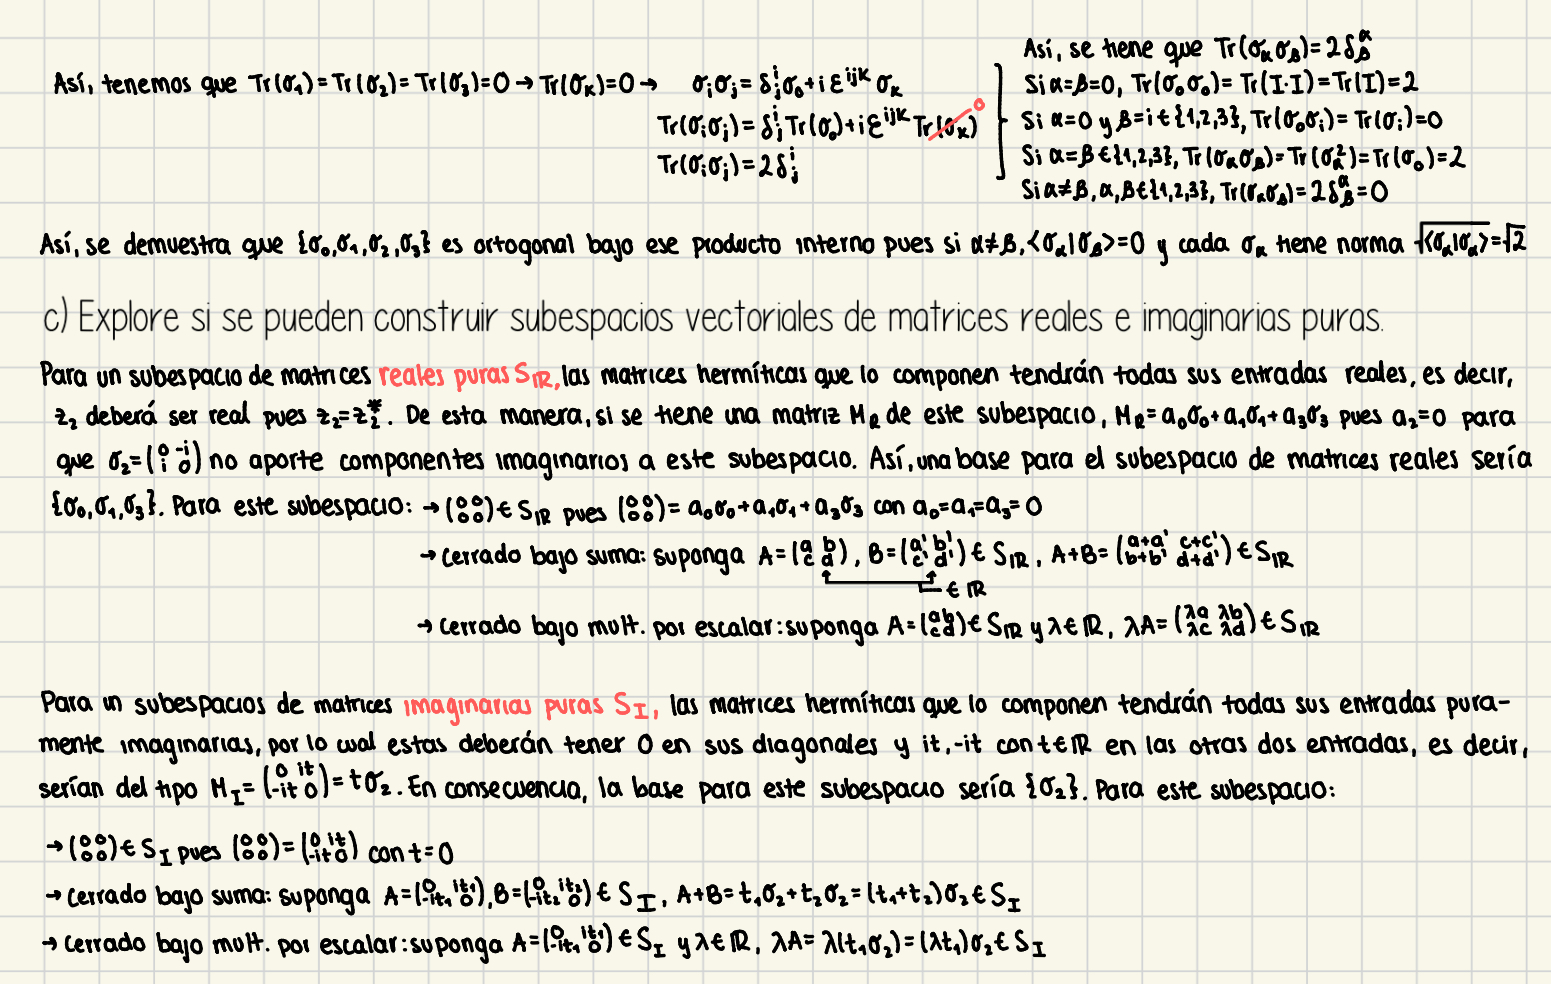 Así, tenemos que Tr(σ₁)=Tr(σ₂)=Tr(σ₃)=0 → Tr(σₖ)=0 →
σᵢσⱼ=δⁱⱼσ₀+iε^{ijk}σₖ
Tr(σᵢσⱼ)=δⁱⱼTr(σ₀)+iε^{ijk}Tr(σₖ) 0
Tr(σᵢσⱼ)=2δⁱⱼ
Así, se tiene que Tr(σ_α σ_β)=2δ^α_β
Si α=β=0, Tr(σ₀σ₀)=Tr(I·I)=Tr(I)=2
Si α=0 y β=i∈{1,2,3}, Tr(σ₀σᵢ)=Tr(σᵢ)=0
Si α=β∈{1,2,3}, Tr(σ_α σ_β)=Tr(σ_α²)=Tr(σ₀)=2
Si α≠β, α,β∈{1,2,3}, Tr(σ_α σ_β)=2δ^α_β=0
Así, se demuestra que {σ₀,σ₁,σ₂,σ₃} es ortogonal bajo ese producto interno pues si α≠β, <σ_α|σ_β>=0 y cada σ_α tiene norma √<σ_α|σ_α>=√2
c) Explore si se pueden construir subespacios vectoriales de matrices reales e imaginarias puras.
Para un subespacio de matrices reales puras S_ℝ, las matrices hermíticas que lo componen tendrán todas sus entradas reales, es decir,
z₂ deberá ser real pues z₂=z₂*. De esta manera, si se tiene una matriz M_R de este subespacio, M_R=a₀σ₀+a₁σ₁+a₃σ₃ pues a₂=0 para
que σ₂=(0 -i; i 0) no aporte componentes imaginarios a este subespacio. Así, una base para el subespacio de matrices reales sería
{σ₀,σ₁,σ₃}. Para este subespacio: → (0 0; 0 0)∈ S_ℝ pues (0 0; 0 0)= a₀σ₀+a₁σ₁+a₃σ₃ con a₀=a₁=a₃=0
→ Cerrado bajo suma: suponga A=(a b; c d), B=(a' b'; c' d')∈ S_ℝ, A+B=(a+a' c+c'; b+b' d+d')∈S_ℝ
∈ ℝ
→ Cerrado bajo mult. por escalar: suponga A=(a b; c d)∈ S_ℝ y λ∈ℝ, λA=(λa λb; λc λd)∈ S_ℝ
Para un subespacios de matrices imaginarias puras S_I, las matrices hermíticas que lo componen tendrán todas sus entradas pura-
mente imaginarias, por lo cual estas deberán tener 0 en sus diagonales y it, -it con t∈ℝ en las otras dos entradas, es decir,
serían del tipo M_I=(0 it; -it 0)=tσ₂. En consecuencia, la base para este subespacio sería {σ₂}. Para este subespacio:
→ (0 0; 0 0)∈ S_I pues (0 0; 0 0)=(0 it; -it 0) con t=0
→ Cerrado bajo suma: suponga A=(0 it₁; -it₁ 0), B=(0 it₂; -it₂ 0)∈ S_I, A+B=t₁σ₂+t₂σ₂=(t₁+t₂)σ₂∈ S_I
→ Cerrado bajo mult. por escalar: suponga A=(0 it₁; -it₁ 0)∈ S_I y λ∈ℝ, λA=λ(t₁σ₂)=(λt₁)σ₂∈ S_I